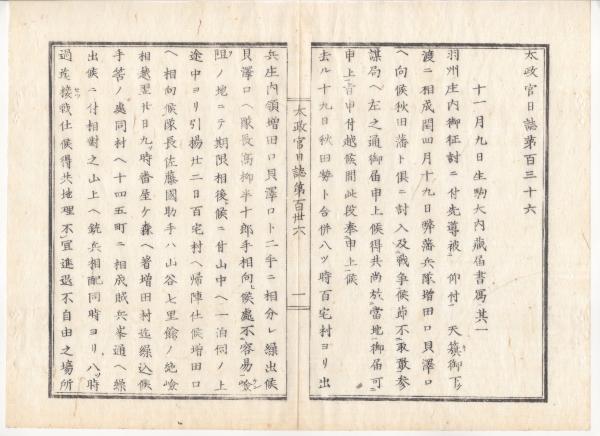 太政官日誌第百三十六
十一月九日生駒大内藏届書寫其一
羽州庄内御征討ニ付先導被 仰付 天旗御下ケ
渡ニ相成閏四月十九日弊藩兵隊増田口貝澤口
ヘ向候秋田藩ト倶ニ討入及戰争候節不取敢参
謀局ヘ左之通御届申上候得共尚於當地御届可
申上旨申付越候間此段奉申上候
去ル十九日秋田勢ト合併八ツ時百宅村ヨリ出
太政官日誌第百卅六
一
兵庄内領増田口貝澤口ト二手ニ相分レ繰出候
貝澤口ヘ隊長高柳半十郎手相向候處不容易嶮
阻ノ地ニテ期限相後候ニ付山中ヘ一泊伺ノ上
途中ヨリ引揚廿二日百宅村ヘ帰陣仕候増田口
ヘ相向候隊長佐藤國助手ハ山谷七里餘ノ絶嶮
相越翌廿日九ツ時番屋ケ森ヘ着増田村迄繰込候
手筈ノ處同村ヘ十四五町ニ相成賊兵峯通ヘ繰
出候ニ付相對之山上ヘ銃兵相配同時ヨリ八ツ時
過迄接戰仕候得共地理不宜進退不自由之場所